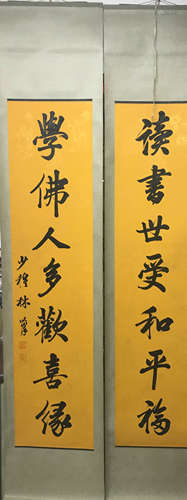 讀書世受和平福
學佛人多歡喜緣
少穆林